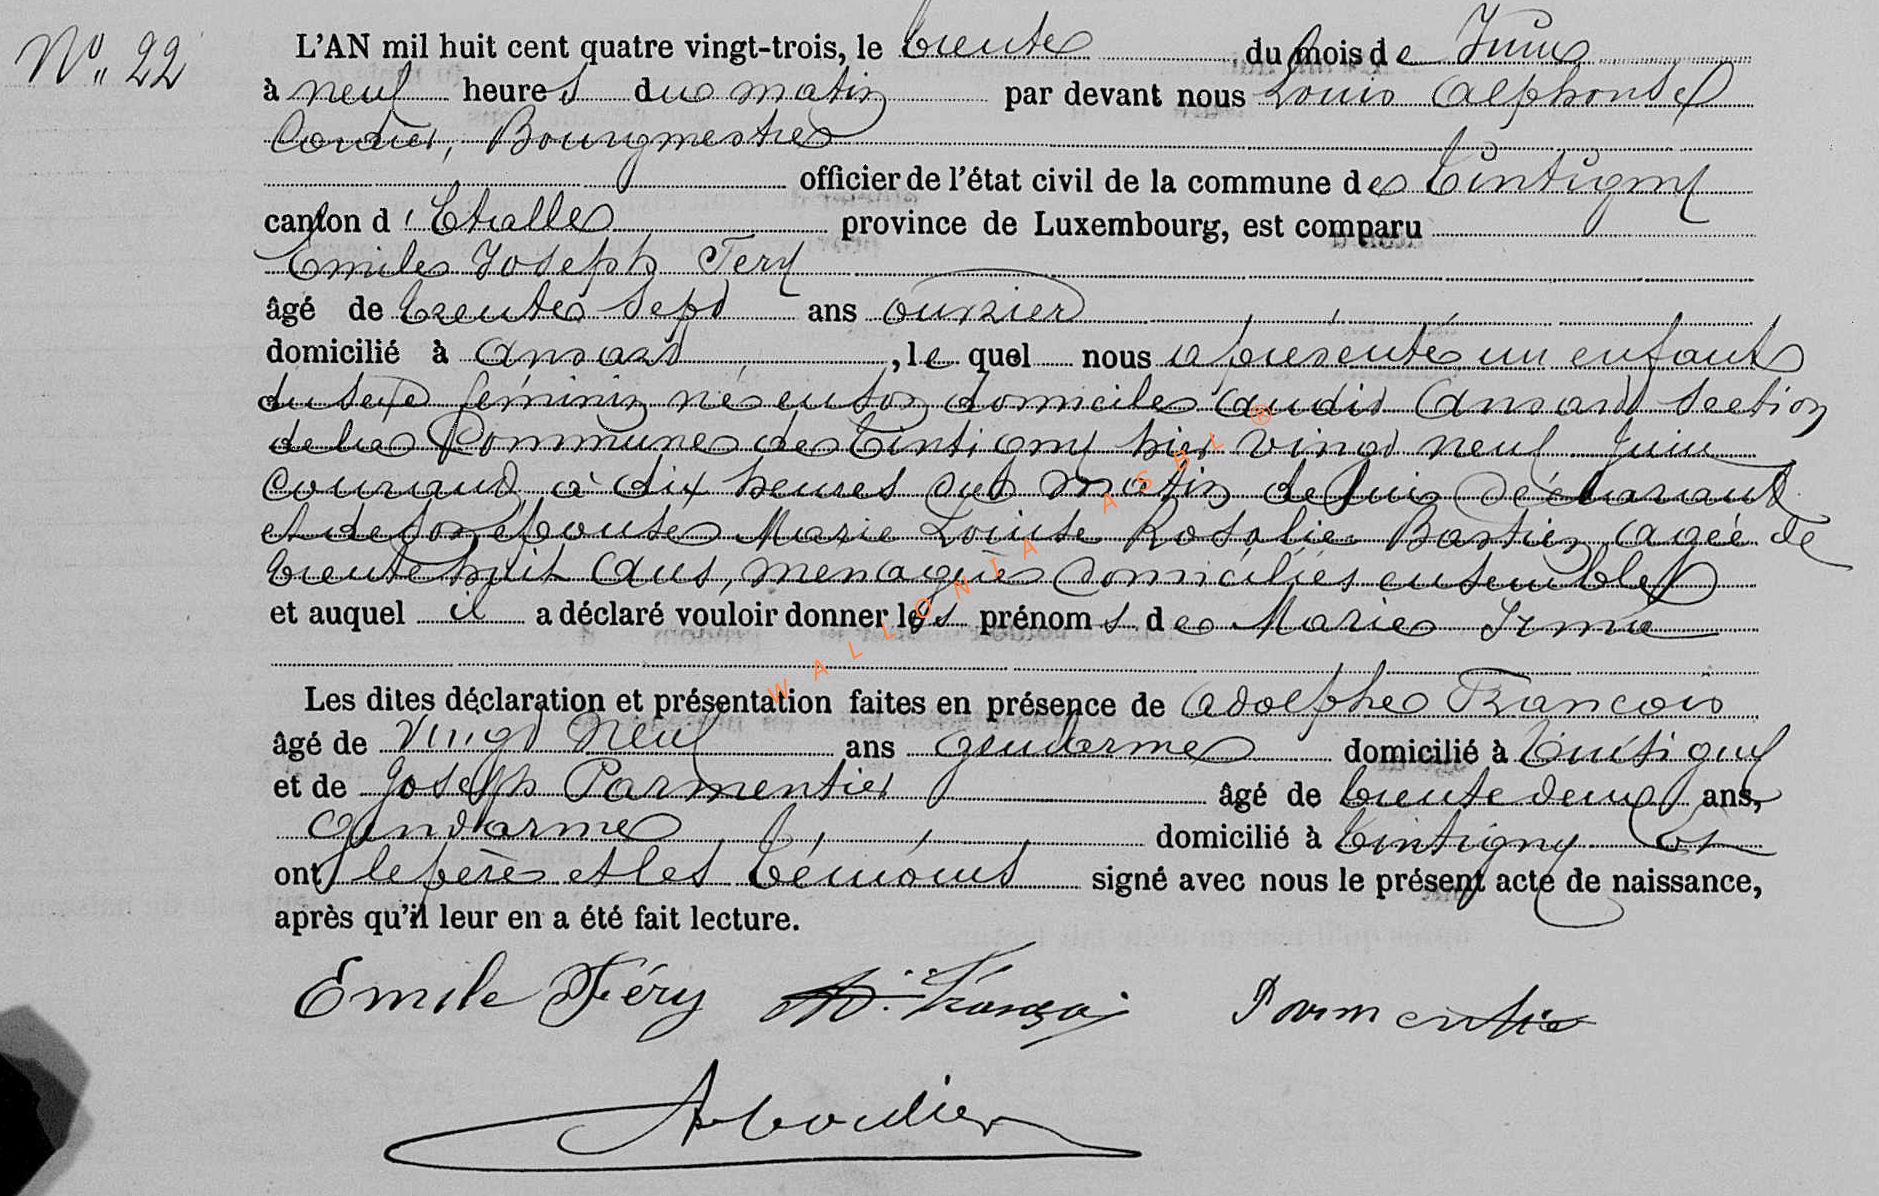 N° 22
L'AN mil huit cent quatre vingt-trois, le trente du mois de Juin
à neuf heures du matin par devant nous Louis Alphonse
Cordier, Bourgmestre
officier de l'état civil de la commune de Tintigny
canton d'Etalle province de Luxembourg, est comparu
Emile Joseph Fery
âgé de trente sept ans ouvrier
domicilié à Ansart, le quel nous a présenté un enfant
du sexe féminin né en son domicile audit Ansart section
de la Commune de Tintigny hier vingt neuf Juin
courant à dix heures du matin de lui déclarant
et de son épouse Marie Louise Rosalie Bastien agée de
trente huit ans, menagère domiciliés ensemble
et auquel il a déclaré vouloir donner les prénoms de Marie Irma
Les dites déclaration et présentation faites en présence de Adolphe Francois
âgé de vingt neuf ans gendarme domicilié à Tintigny
et de Joseph Parmentier âgé de trente deux ans,
gendarme domicilié à Tintigny Et
ont le père et les témoins signé avec nous le présent acte de naissance,
après qu'il leur en a été fait lecture.
Emile Féry A. François Parmentier
A Cordier
WALLONIA ASBL ®